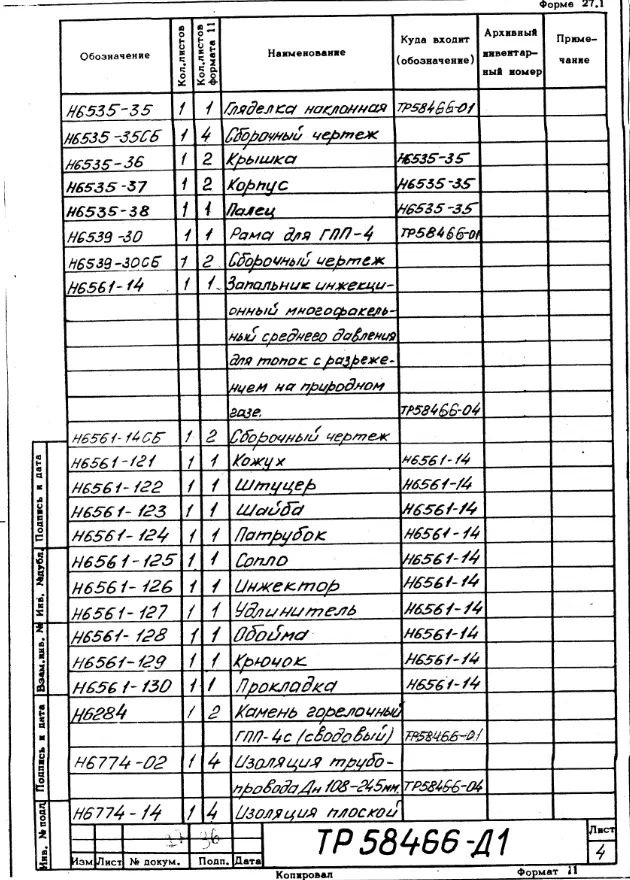 Форме 27.1
Обозначение | Кол.листов | Кол.листов формата 11 | Наименование | Куда входит (обозначение) | Архивный инвентарный номер | Примечание
Н6535-35 1 1 Гляделка наклонная ТР58466-01
Н6535-35СБ 1 4 Сборочный чертеж
Н6535-36 1 2 Крышка Н6535-35
Н6535-37 1 2 Корпус Н6535-35
Н6535-38 1 1 Палец Н6535-35
Н6539-30 1 1 Рама для ГПП-4 ТР58466-01
Н6539-30СБ 1 2 Сборочный чертеж
Н6561-14 1 1 Запальник инжекци-
онный многофакель-
ный среднего давления
для топок с разреже-
нием на природном
газе. ТР58466-04
Н6561-14СБ 1 2 Сборочный чертеж
Н6561-121 1 1 Кожух Н6561-14
Н6561-122 1 1 Штуцер Н6561-14
Н6561-123 1 1 Шайба Н6561-14
Н6561-124 1 1 Патрубок Н6561-14
Н6561-125 1 1 Сопло Н6561-14
Н6561-126 1 1 Инжектор Н6561-14
Н6561-127 1 1 Удлинитель Н6561-14
Н6561-128 1 1 Обойма Н6561-14
Н6561-129 1 1 Крючок Н6561-14
Н6561-130 1 1 Прокладка Н6561-14
Н6284 1 2 Камень горелочный
ГПП-4с (сводовый) ТР58466-01
Н6774-02 1 4 Изоляция трубо-
провода Дн 108-245мм. ТР58466-04
Н6774-14 1 4 Изоляция плоской
Подпись и дата
Инв. №дубл.
Взам.инв. №
Подпись и дата
Инв. №подл
Изм Лист № докум. Подп. Дата
ТР 58466-Д1
Лист
4
Копировал
Формат 11